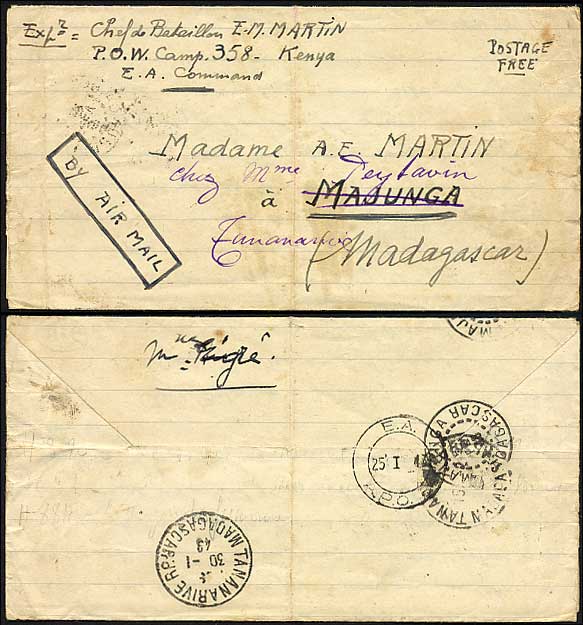 Exp.r = Chef de Bataillon E.M. MARTIN
P.O.W. Camp. 358 - Kenya
E.A. Command
POSTAGE
FREE
BY AIR MAIL
Madame A.E. MARTIN
chez Mme Peytavin
à MAJUNGA
Tananarive
(Madagascar)
MAJ
E.A.
25 I
A.P.O.
MADAGASCAR
TANANARIVE R.P.
30-1
43
MADAGASCAR